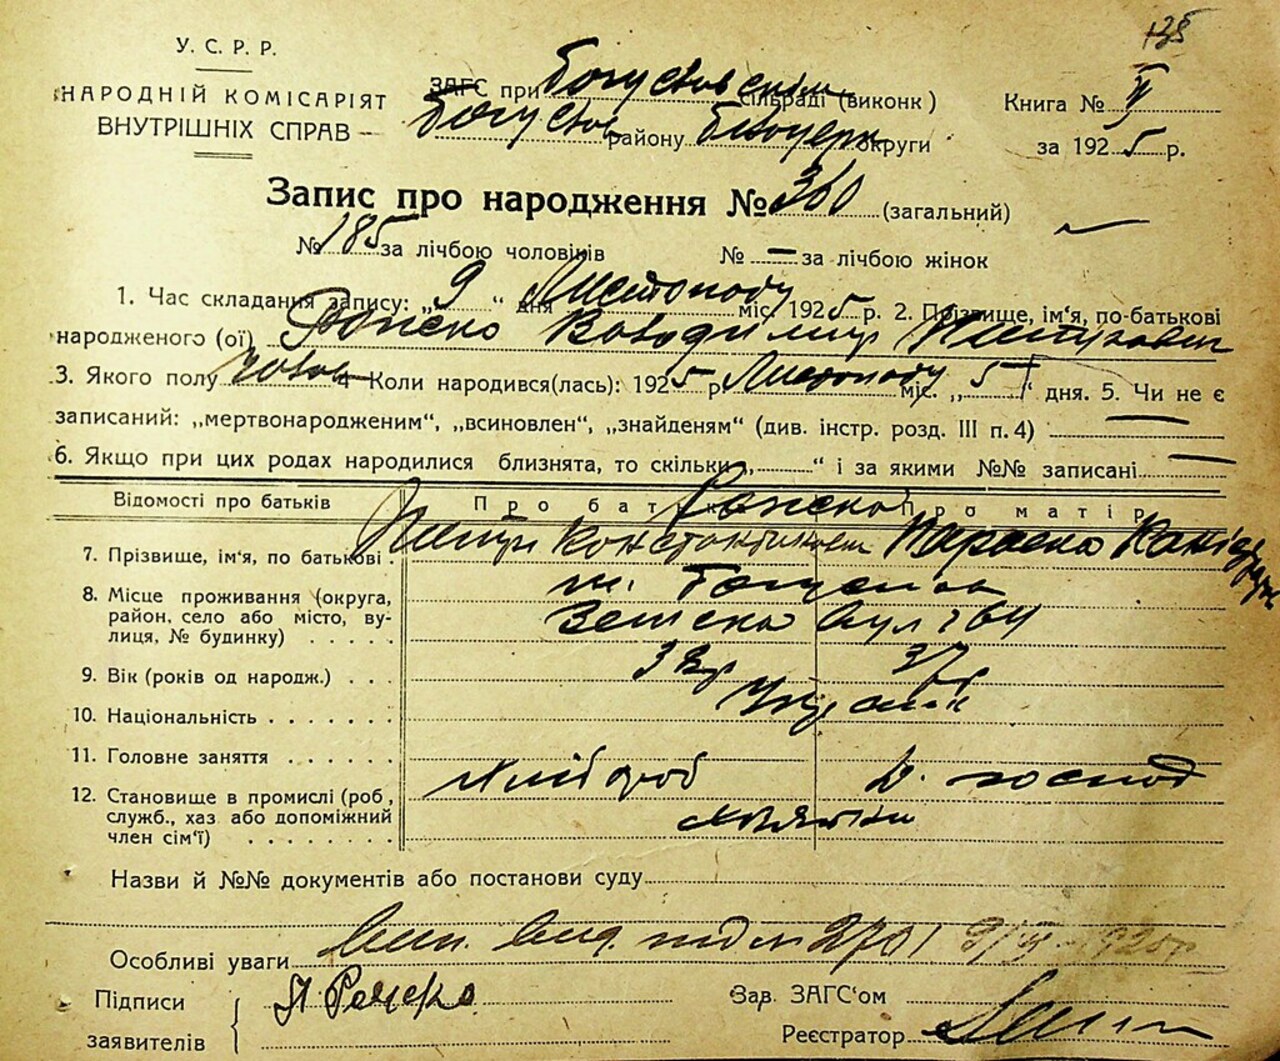 135
У. С. Р. Р.
НАРОДНІЙ КОМІСАРІЯТ
ВНУТРІШНІХ СПРАВ
ЗАГС при Богуславськім сільраді (виконк)
Богуслав району Білоцерк округи
Книга № II
за 1925 р.
Запис про народження № 360 (загальний)
№ 185 за лічбою чоловіків № — за лічбою жінок
1. Час складання запису: „9“ дня Листопаду міс. 1925 р. 2. Прізвище, ім'я, по-батькові
народженого (ої) Володимир Петрович
3. Якого полу чолов 4 Коли народився(лась): 1925 р. Листопаду міс. „5“ дня. 5. Чи не є
записаний: „мертвонародженим“, „всиновлен“, „знайденям“ (див. інстр. розд. III п. 4) —
6. Якщо при цих родах народилися близнята, то скільки „......“ і за якими №№ записані —
Відомості про батьків Про батька Про матір
7. Прізвище, ім'я, по батькові Петро Константинович Параска
8. Місце проживання (округа, район, село або місто, вулиця, № будинку) м. Богуслав
вул 64
9. Вік (років од народж.) 37
10. Національність Українц
11. Головне заняття Хлібороб д. господ
12. Становище в промислі (роб, служб., хаз або допоміжний член сім'ї)
Назви й №№ документів або постанови суду
Особливі уваги Вип. вид. під № 2701
Підписи заявителів П
Зав. ЗАГС'ом
Реєстратор